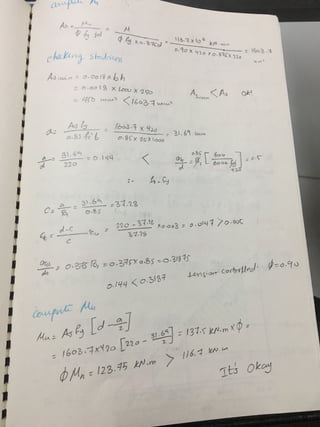 compute As
As = Mu / φ fy jd = M / φ fy × 0.875d = 116.7 × 10⁶ N·mm / 0.90 × 420 × 0.875 × 220 = 1603.7 mm²
checking steelmin
As min = 0.0018 × bh
= 0.0018 × 1000 × 250 As min < As ok!
= 450 mm² < 1603.7 mm²
a = As fy / 0.85 f'c b = 1603.7 × 420 / 0.85 × 25 × 1000 = 31.69 mm
a/d = 31.69 / 220 = 0.144 <
∴ fs = fy
C = a / β1 = 31.69 / 0.85 = 37.28
εt = d - c / c εcu = 220 - 37.28 / 37.28 × 0.003 = 0.0147 > 0.005
= 0.375 β1 = 0.375 × 0.85 = 0.31875
0.144 < 0.3187 tension controlled. φ = 0.90
compute Mn
Mn = As fy [d - a/2]
= 1603.7 × 420 [220 - 31.69/2] = 137.5 kN.m × φ =
φ Mn = 123.75 kN.m > 116.7 kN.m
It's Okay